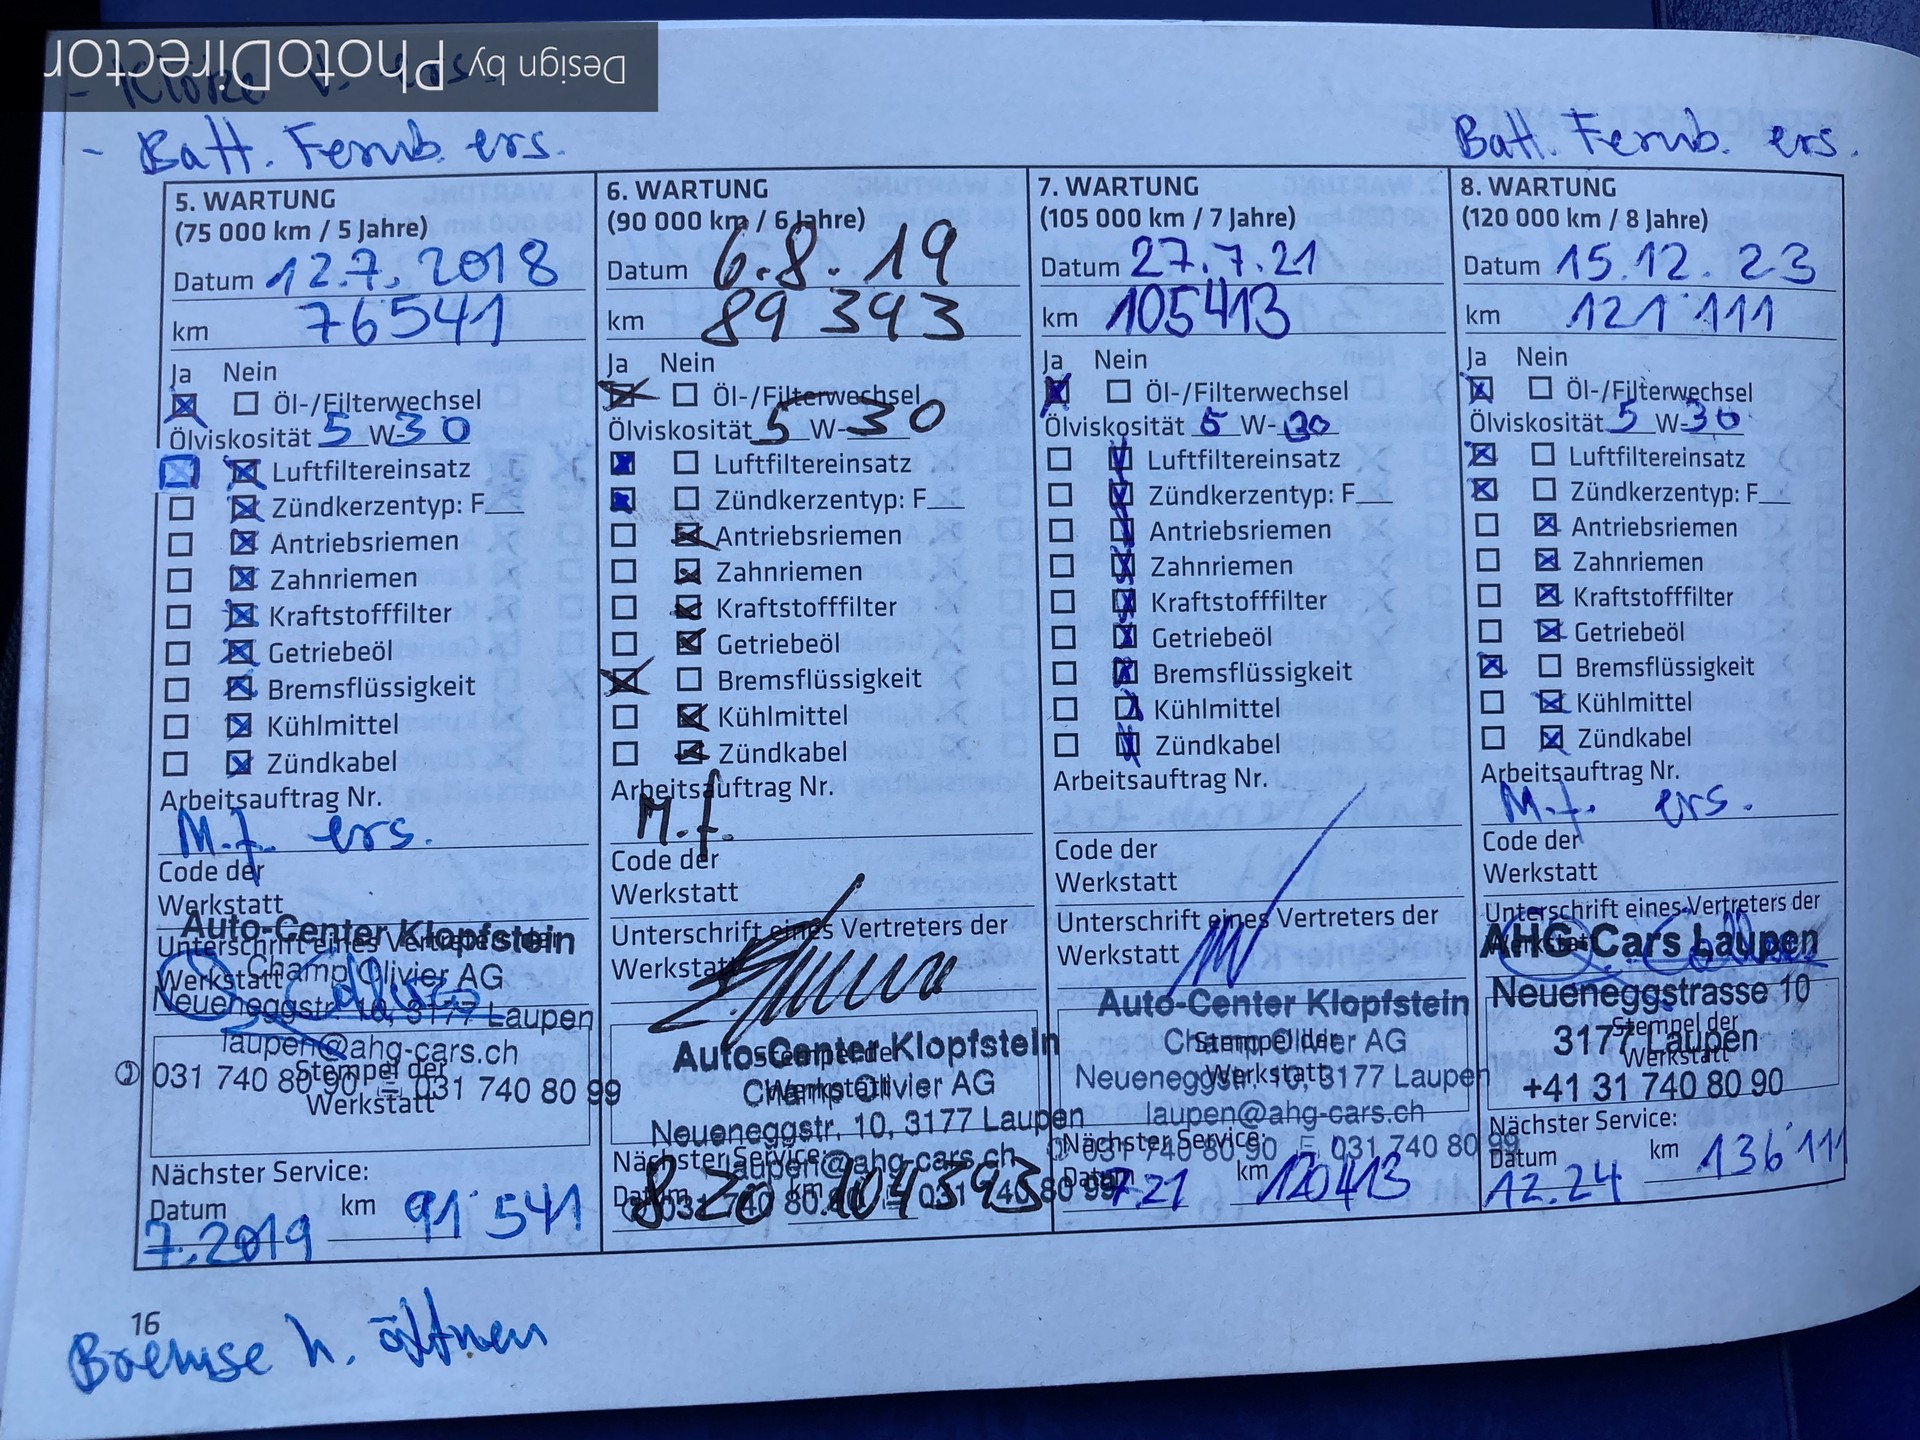 Design by PhotoDirector
- Klötze v. ers.
- Batt. Fernb. ers.
Batt. Fernb. ers.
5. WARTUNG
(75 000 km / 5 Jahre)
Datum 12.7.2018
km 76541
Ja Nein
Öl-/Filterwechsel
Ölviskosität 5 W-30
Luftfiltereinsatz
Zündkerzentyp: F__
Antriebsriemen
Zahnriemen
Kraftstofffilter
Getriebeöl
Bremsflüssigkeit
Kühlmittel
Zündkabel
Arbeitsauftrag Nr.
M.f. ers.
Code der
Werkstatt
Auto-Center Klopfstein
Unterschrift eines Vertreters der
Champ Olivier AG
Werkstatt
Neueneggstr. 10, 3177 Laupen
laupen@ahg-cars.ch
Stempel der
031 740 80 90 031 740 80 99
Werkstatt
Nächster Service:
Datum km 91'541
7.2019
6. WARTUNG
(90 000 km / 6 Jahre)
Datum 6.8.19
km 89 393
Ja Nein
Öl-/Filterwechsel
Ölviskosität 5 W-30
Luftfiltereinsatz
Zündkerzentyp: F__
Antriebsriemen
Zahnriemen
Kraftstofffilter
Getriebeöl
Bremsflüssigkeit
Kühlmittel
Zündkabel
Arbeitsauftrag Nr.
M.f.
Code der
Werkstatt
Unterschrift eines Vertreters der
Werkstatt
Auto-Center Klopfstein
Stempel der
Champ Olivier AG
Werkstatt
Neueneggstr. 10, 3177 Laupen
Nächster Service:
laupen@ahg-cars.ch
Datum 8.20 km 104393
031 740 80 90 031 740 80 99
7. WARTUNG
(105 000 km / 7 Jahre)
Datum 27.7.21
km 105413
Ja Nein
Öl-/Filterwechsel
Ölviskosität 5 W-30
Luftfiltereinsatz
Zündkerzentyp: F__
Antriebsriemen
Zahnriemen
Kraftstofffilter
Getriebeöl
Bremsflüssigkeit
Kühlmittel
Zündkabel
Arbeitsauftrag Nr.
Code der
Werkstatt
Unterschrift eines Vertreters der
Werkstatt
Auto-Center Klopfstein
Champ Olivier AG
Stempel der
Neueneggstr. 10, 3177 Laupen
Werkstatt
laupen@ahg-cars.ch
Nächster Service:
031 740 80 90 031 740 80 99
Datum 7.21 km 120413
8. WARTUNG
(120 000 km / 8 Jahre)
Datum 15.12.23
km 121'111
Ja Nein
Öl-/Filterwechsel
Ölviskosität 5 W-30
Luftfiltereinsatz
Zündkerzentyp: F__
Antriebsriemen
Zahnriemen
Kraftstofffilter
Getriebeöl
Bremsflüssigkeit
Kühlmittel
Zündkabel
Arbeitsauftrag Nr.
M.f. ers.
Code der
Werkstatt
Unterschrift eines Vertreters der
Werkstatt
AHG-Cars Laupen
Neueneggstrasse 10
3177 Laupen
Stempel der
Werkstatt
+41 31 740 80 90
Nächster Service:
Datum km 136'111
12.24
16
Bremse h. öffnen